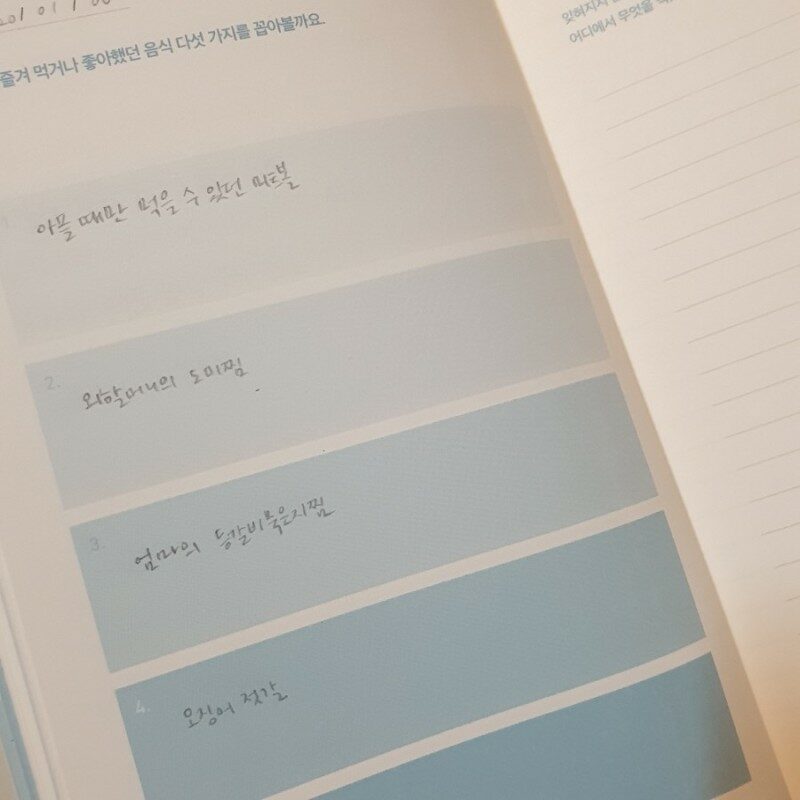 즐겨 먹거나 좋아했던 음식 다섯 가지를 꼽아볼까요.
아플 때만 먹을 수 있었던 미트볼
2. 외할머니의 도미찜
3. 엄마의 등갈비묵은지찜
4. 오징어 젓갈
어디에서 무엇을